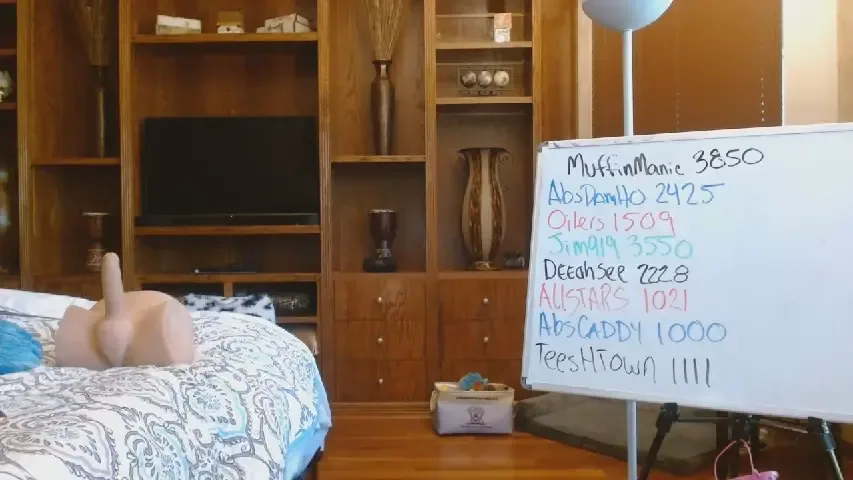 MuffinManie 3850
AbsDamHO 2425
Oilers 1509
Jim919 3550
DEEahSee 2228
AllSTARS 1021
AbsCADDY 1000
TeesHTown 1111